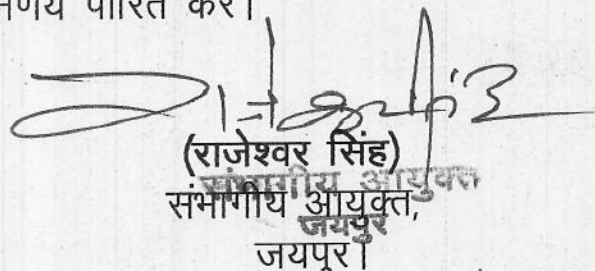 निर्णय पारित करें।
(राजेश्वर सिंह)
संभागीय आयुक्त
संभागीय आयुक्त,
जयपुर
जयपुर।